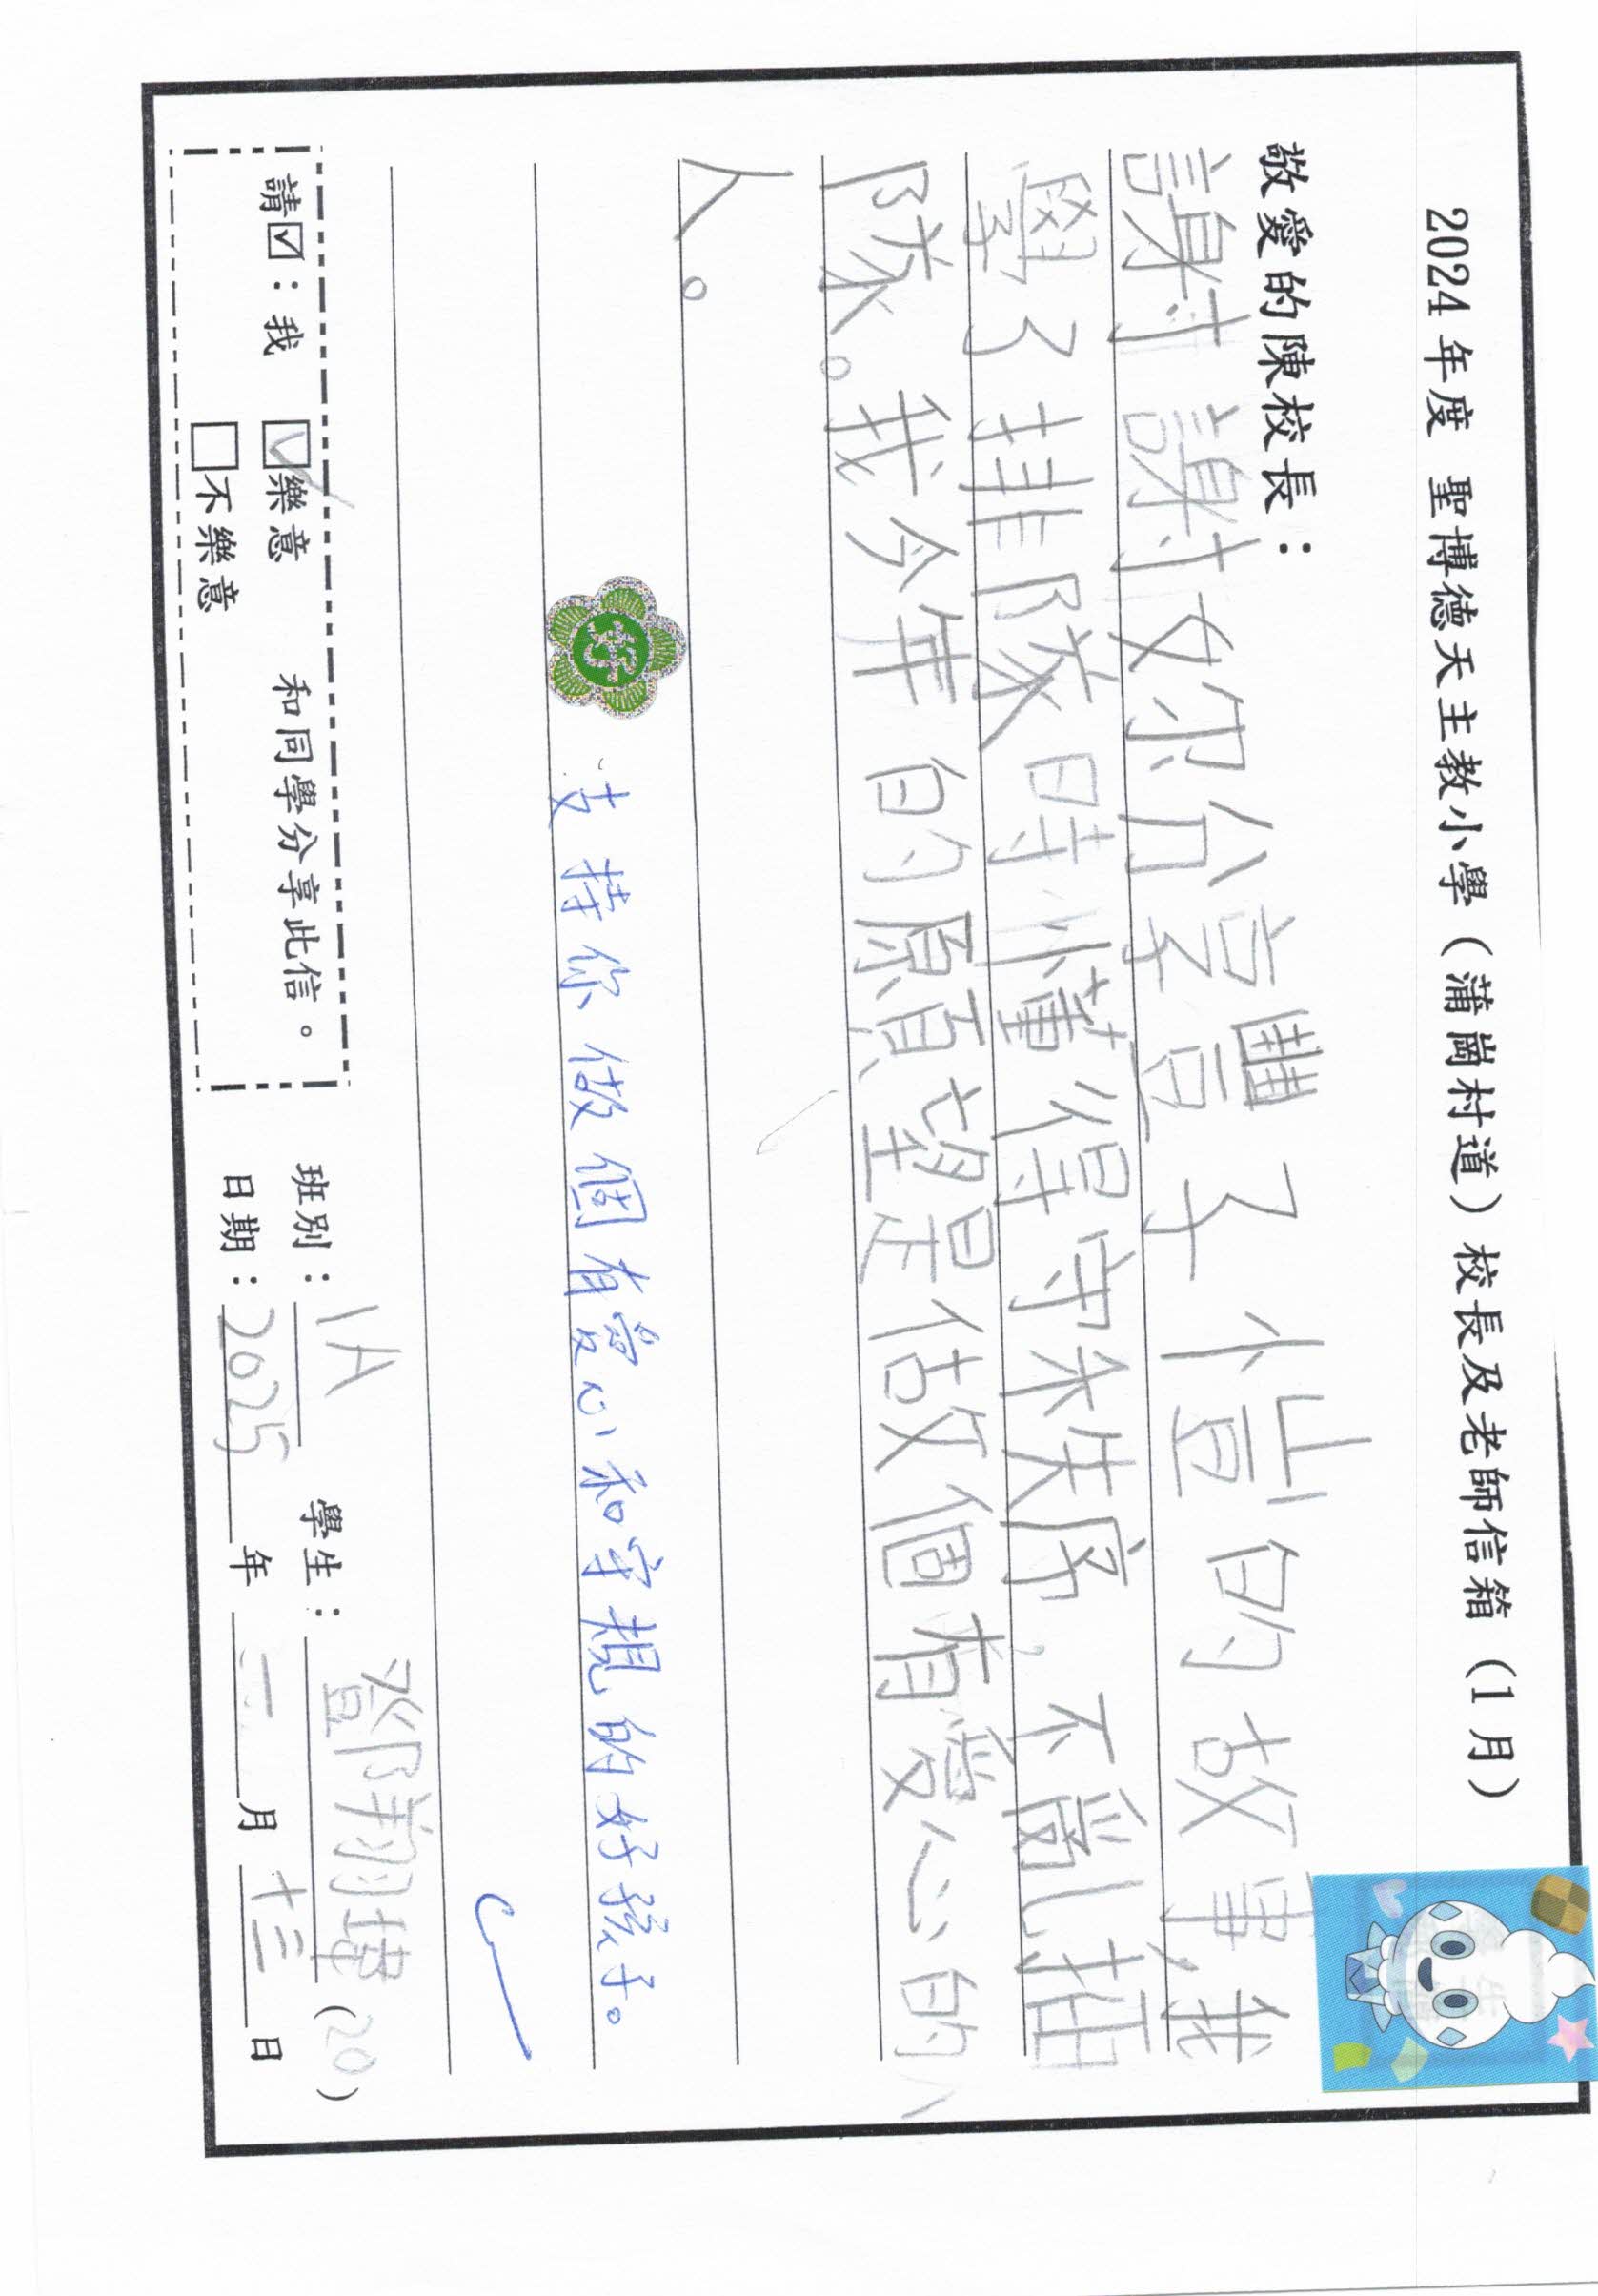 2024 年度 聖博德天主教小學（蒲崗村道）校長及老師信箱（1 月）
敬愛的陳校長：
謝謝妳分享豐子愷的故事,我
學了排隊時懂得守秩序,不會插
隊。我今年的願望是做個有愛心的
人。
支持你做個有愛心和守規的好孩子。
請☑：我 ☑樂意 和同學分享此信。
□不樂意
班別：1A 學生：鄧翔瑋（20）
日期：2025年 二 月 十三 日